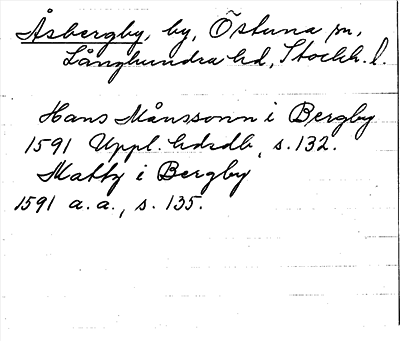 Åsbergby, by, Östuna sn,
Långhundra hd, Stockh. l.
Hans Månssonn i Bergby
1591 Uppl. hdrdb, s. 132.
Matty i Bergby
1591 a. a., s. 135.